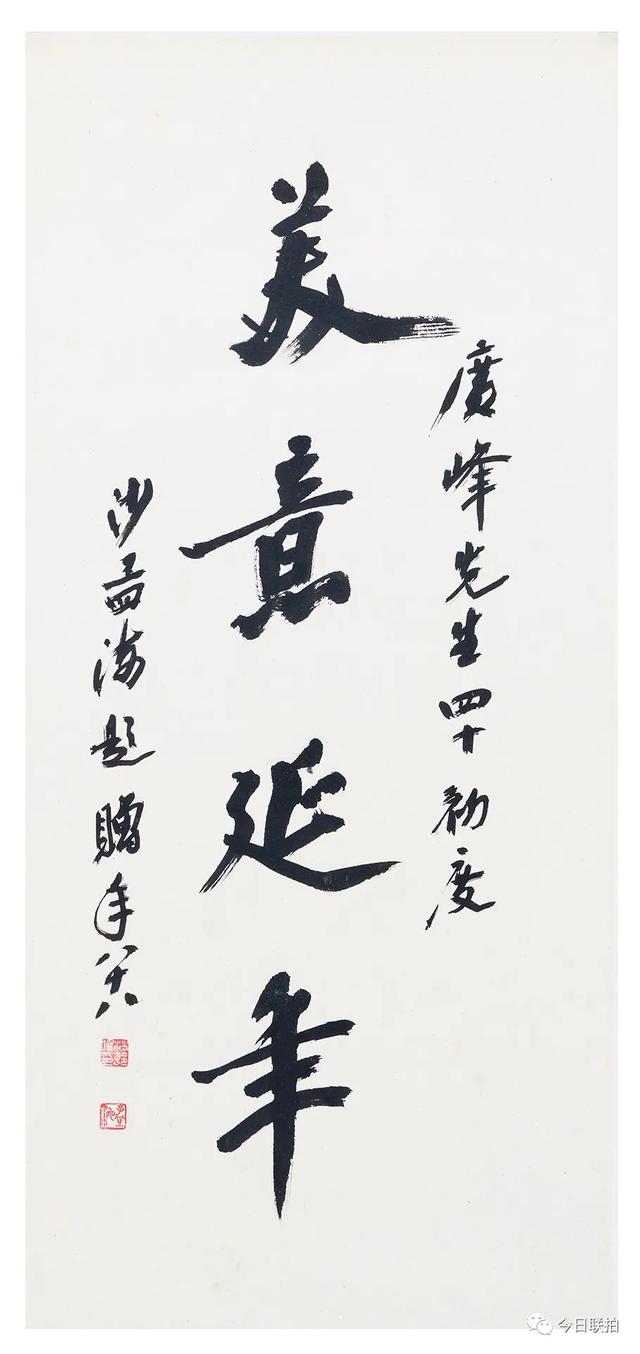 廣峰先生四十初度
美意延年
沙孟海題贈年八十八
今日联拍